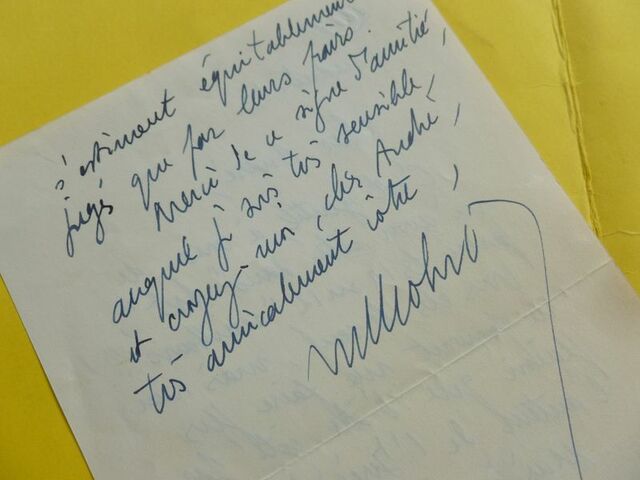 s'estiment équitablement
jugés que par leurs pairs.
Merci de ce signe d'amitié,
auquel je suis très sensible,
et croyez-moi, cher André,
très amicalement vôtre,